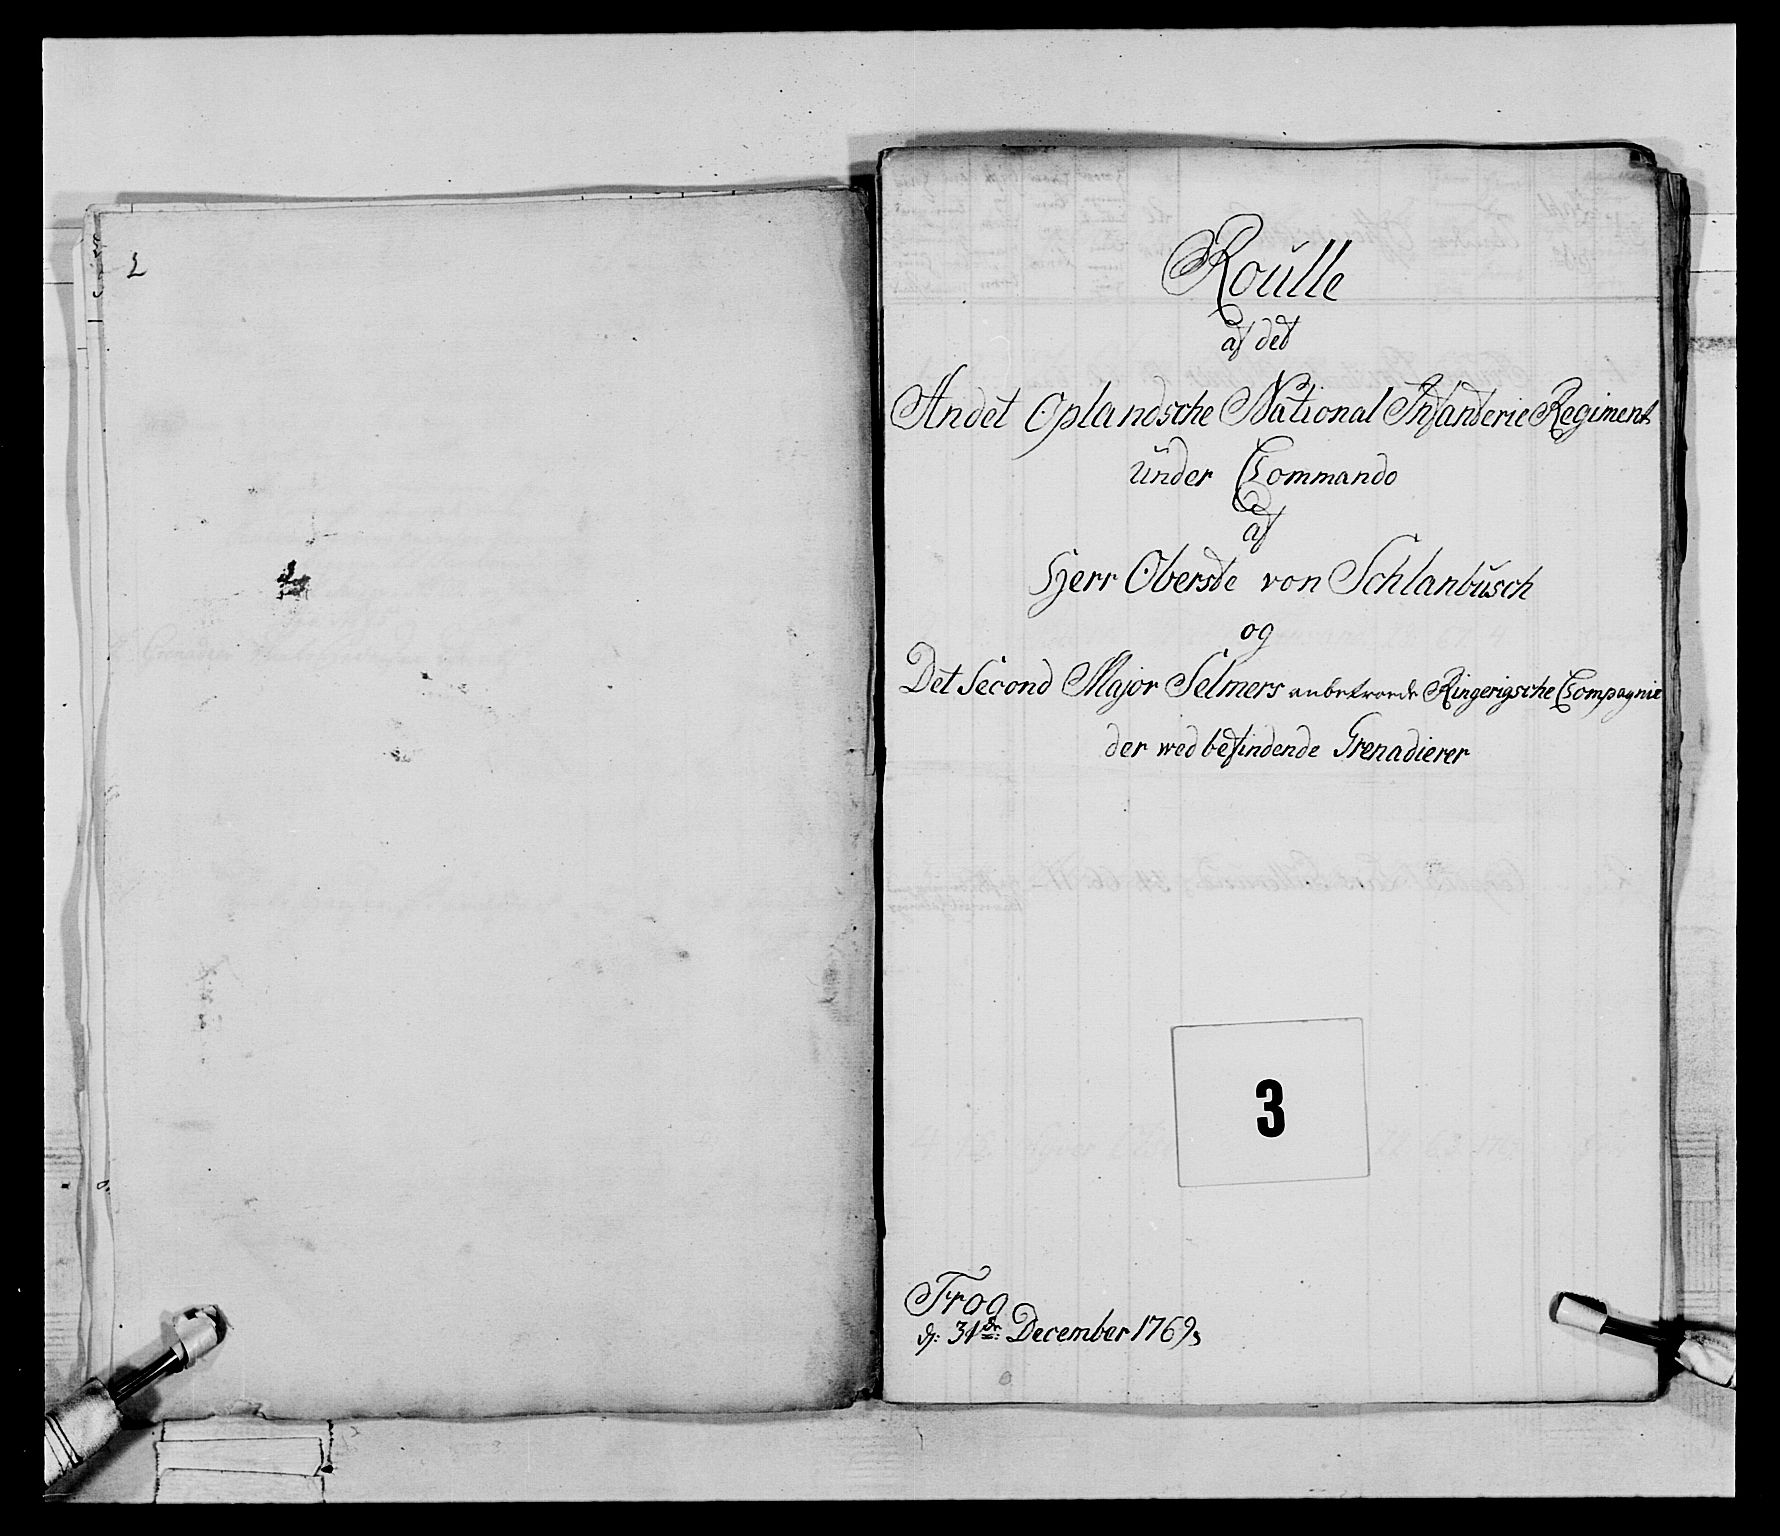 Roŭlle
af det
Andet Oplandsche National Infanterie Regiment
ŭnder Commando
af
Herr Oberste von Schlanbŭsch
og
Det Second Major Selmers anbetroede Ringerigsche Compagnie
der wed befindende Grenadierer
3
Frog
d: 31te December 1769